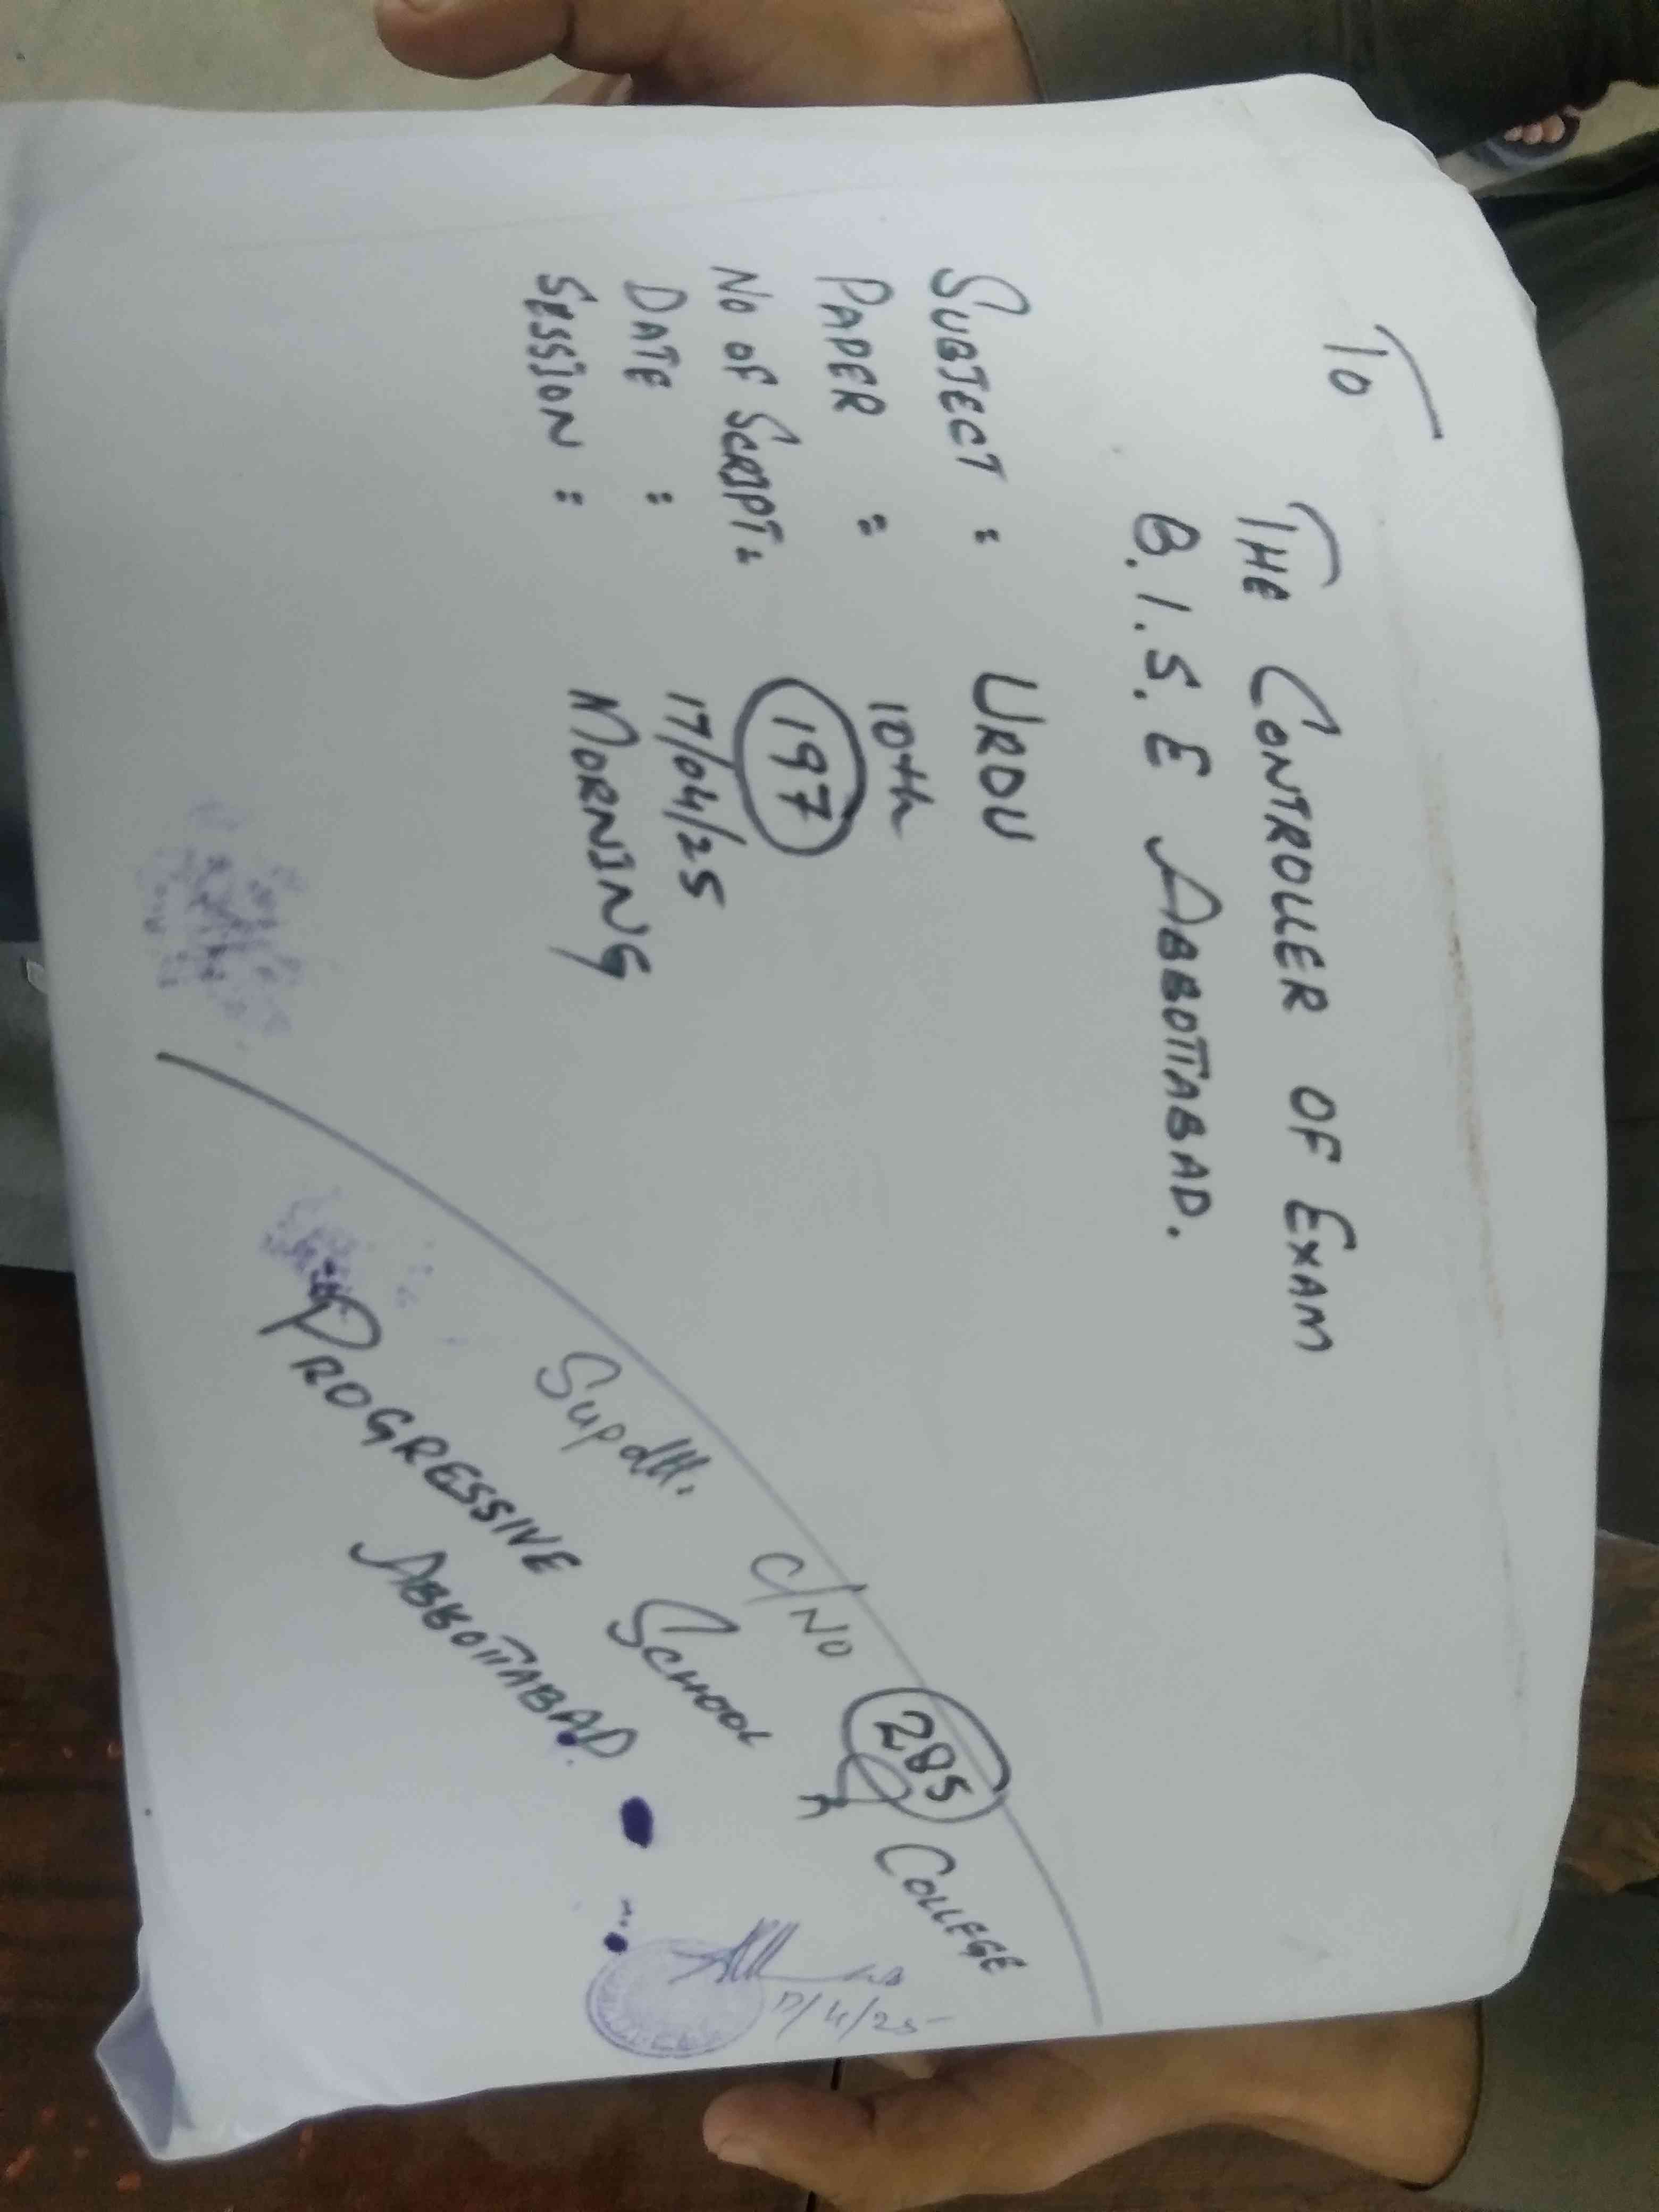 To
THE CONTROLLER OF EXAM
B.I.S.E ABBOTTABAD.
SUBJECT : URDU
PAPER : 10th
NO OF SCRIPT : 197
DATE : 17/04/25
SESSION : MORNING
Supdtt. C/NO 285
PROGRESSIVE SCHOOL & COLLEGE
ABBOTTABAD.
17/4/25